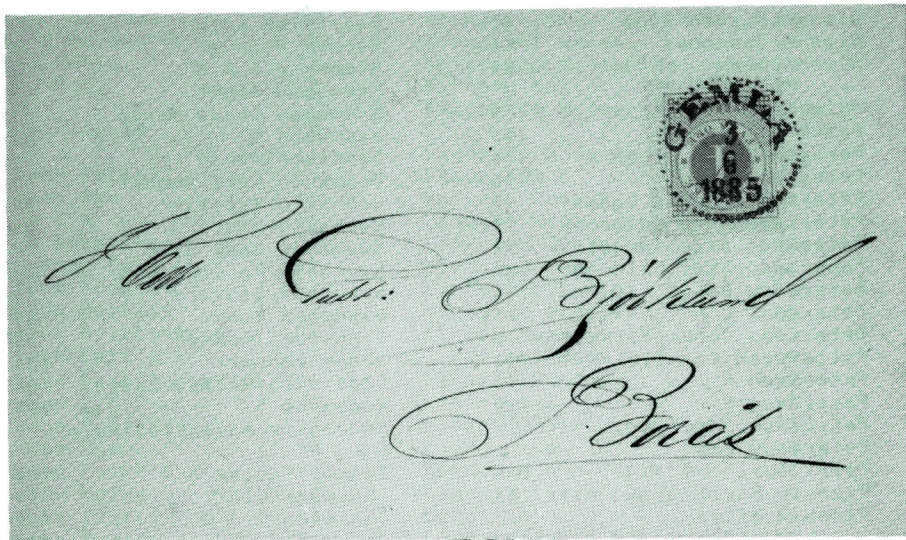 GEMLA
3
6
1885
Herr Gust: Björklund
Borås